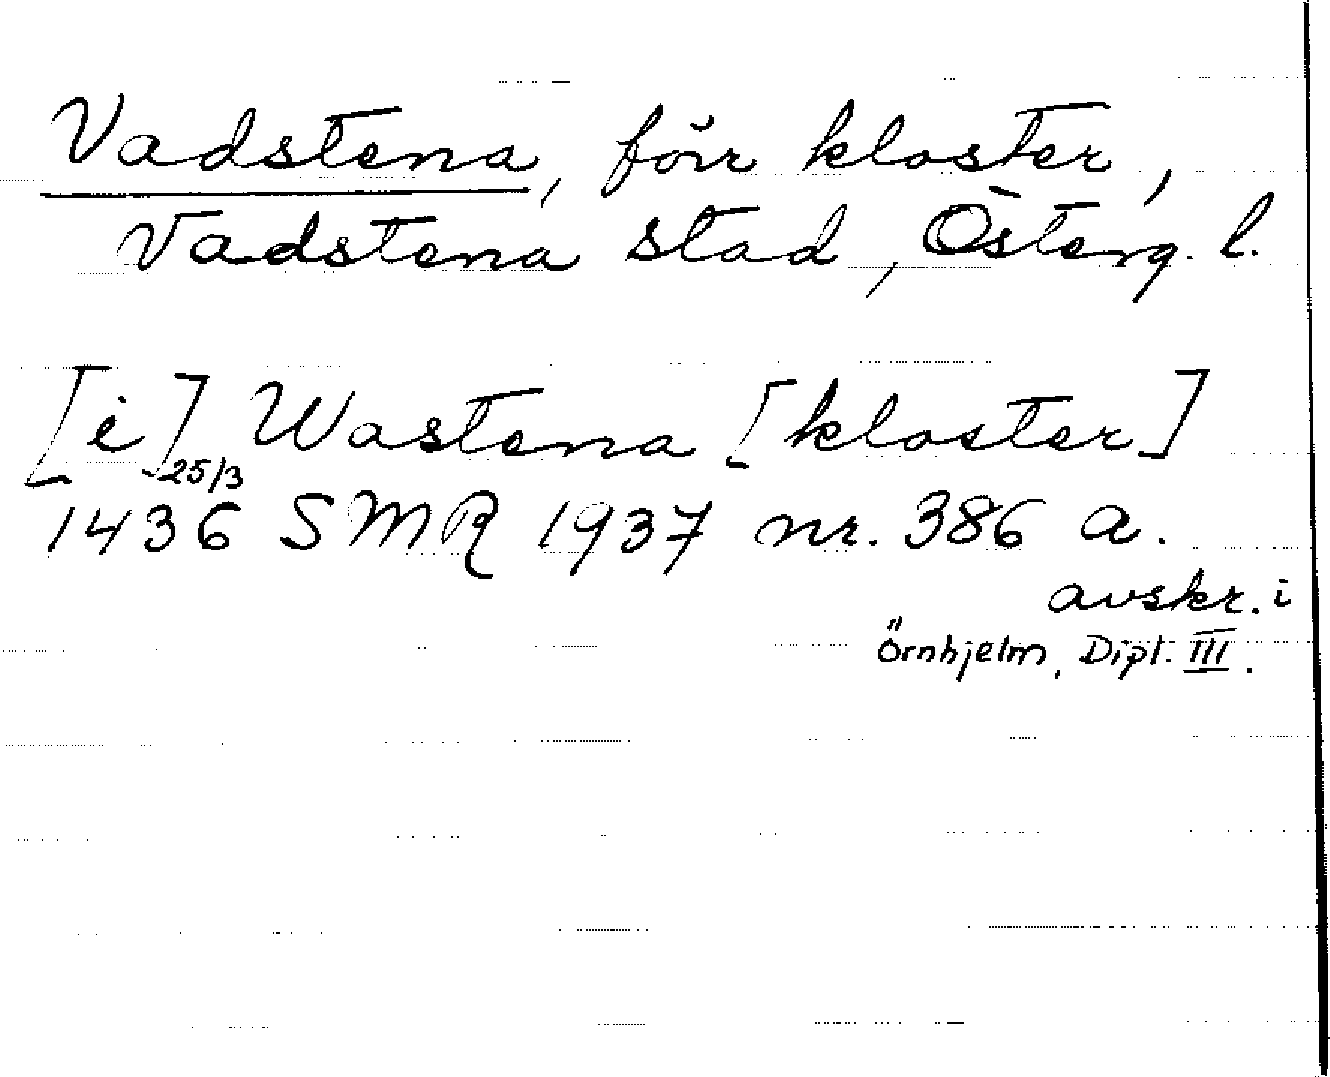 Vadstena, förr kloster,
Vadstena stad, Österg. l.
[i] Wastena [kloster]
25/3
1436 SMR 1937 nr. 386 a.
avskr. i
Örnhjelm, Dipl. III.